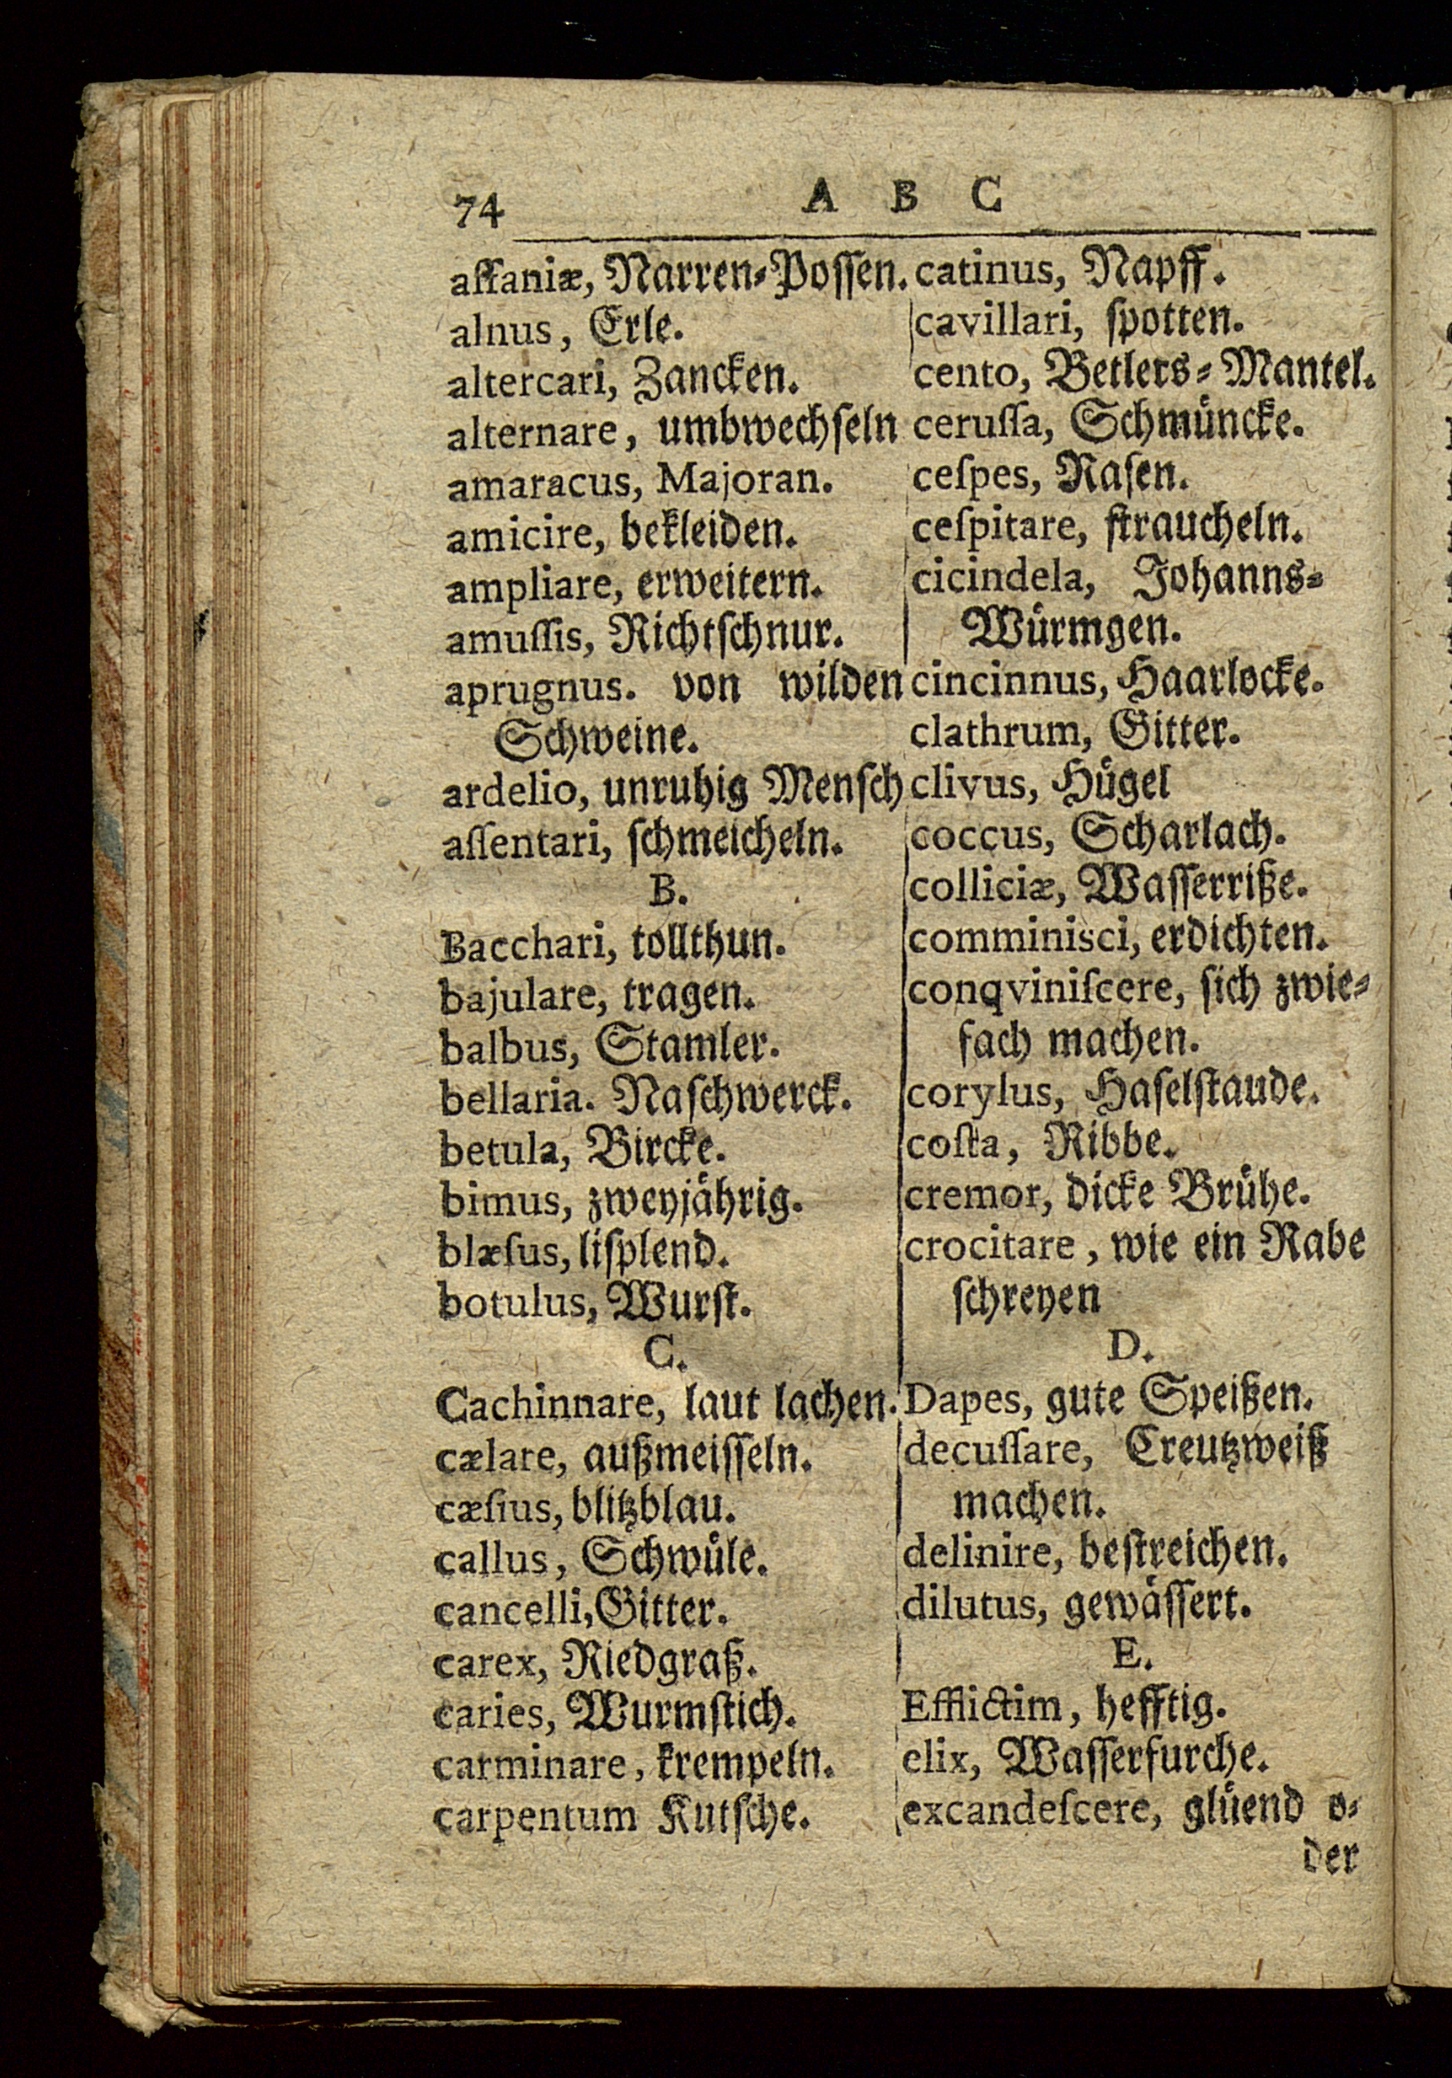 74
A B C
affaniæ, Narren-Possen.
alnus, Erle.
altercari, Zancken.
alternare, umbwechſeln
amaracus, Majoran.
amicire, bekleiden.
ampliare, erweitern.
amuſſis, Richtſchnur.
aprugnus. von wilden
Schweine.
ardelio, unruhig Menſch
aſſentari, ſchmeicheln.
B.
Bacchari, tollthun.
bajulare, tragen.
balbus, Stamler.
bellaria. Naſchwerck.
betula, Bircke.
bimus, zweyjährig.
blæſus, liſplend.
botulus, Wurſt.
C.
Cachinnare, laut lachen.
cælare, außmeiſſeln.
cæſius, blitzblau.
callus, Schwüle.
cancelli, Gitter.
carex, Riedgraß.
caries, Wurmſtich.
carminare, krempeln.
carpentum Kutſche.
catinus, Napff.
cavillari, ſpotten.
cento, Betlers-Mantel.
ceruſſa, Schmüncke.
ceſpes, Raſen.
ceſpitare, ſtraucheln.
cicindela, Johanns-
Würmgen.
cincinnus, Haarlocke.
clathrum, Gitter.
clivus, Hügel
coccus, Scharlach.
colliciæ, Waſſerriße.
comminisci, erdichten.
conqviniſcere, ſich zwie-
fach machen.
corylus, Haſelſtaude.
coſta, Ribbe.
cremor, dicke Brühe.
crocitare, wie ein Rabe
ſchreyen
D.
Dapes, gute Speißen.
decuſſare, Creutzweiß
machen.
delinire, beſtreichen.
dilutus, gewäſſert.
E.
Efflictim, hefftig.
elix, Waſſerfurche.
excandeſcere, glüend o-
der